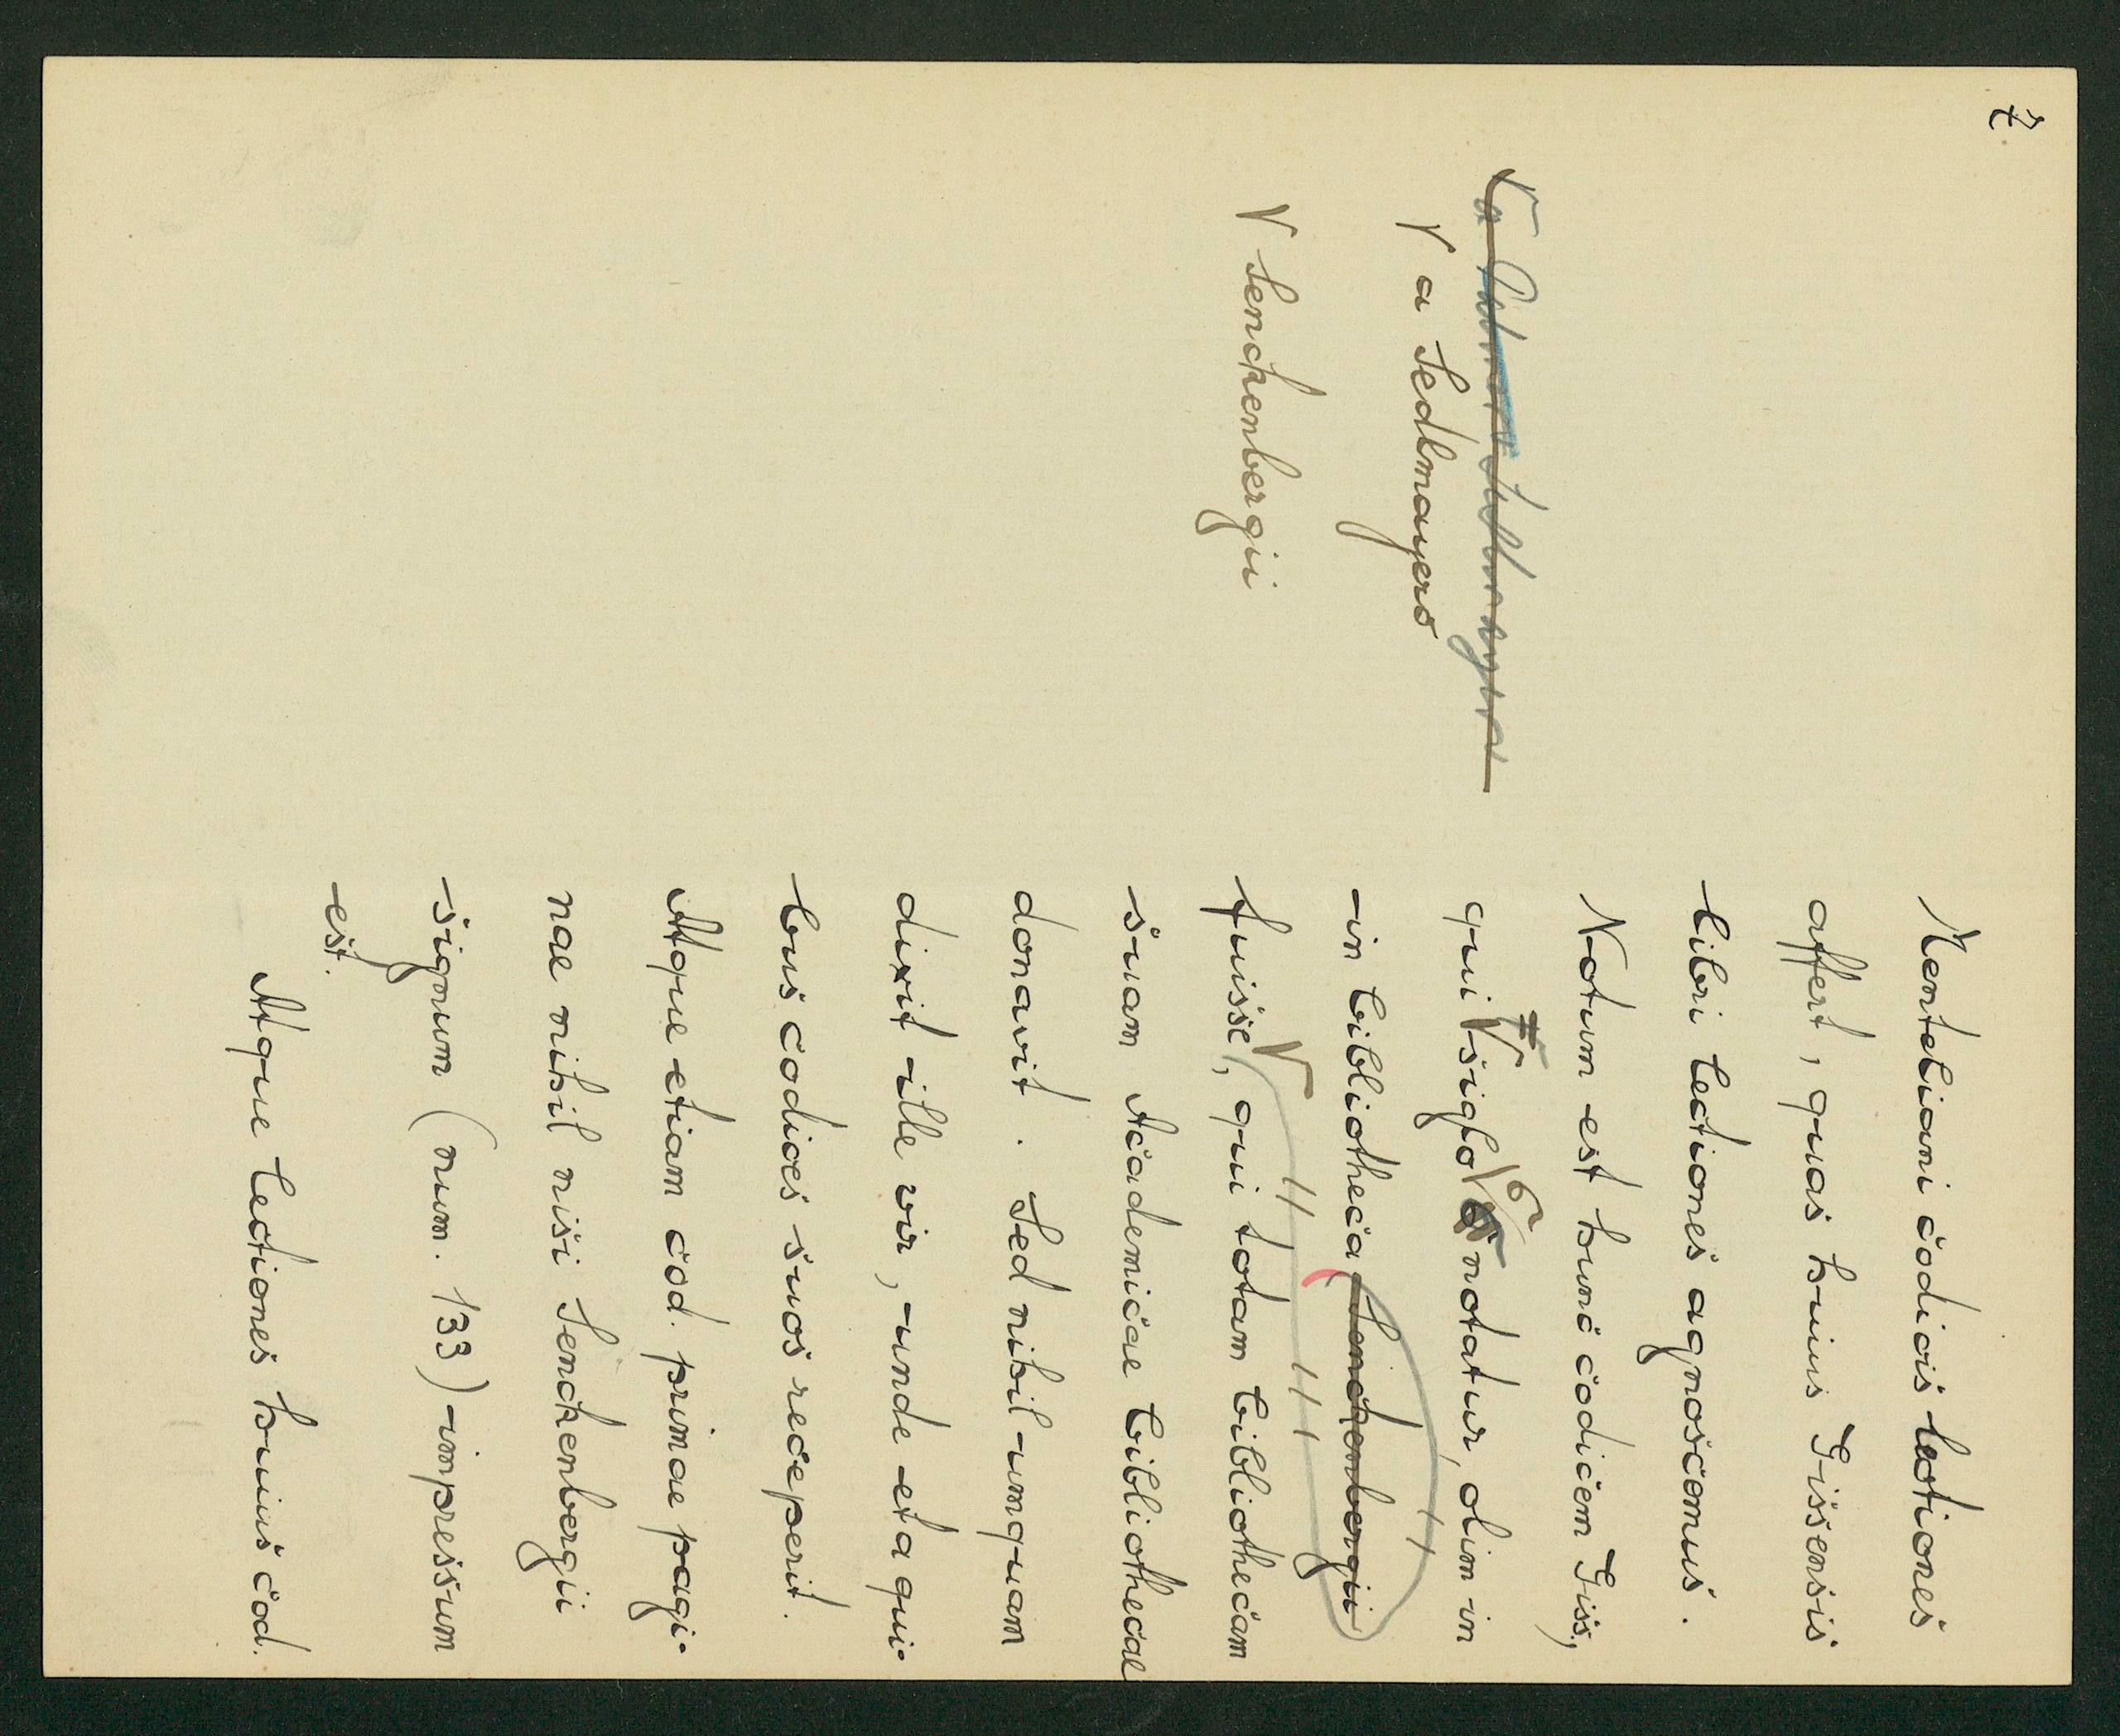 7
Menteliani codicis lectiones
affert, quas huius Gissensis
libri lectiones agnoscamus.
Notum est hunc codicem Giss,
qui √ siglo √ G notatur, olim in
in bibliotheca Senckenbergii
fuisse √, qui totam bibliothecam
suam Academicae bibliothecae
donavit. Sed nihil umquam
dixit ille vir, unde et a qui-
bus codices suos receperit.
Atque etiam cod. primae pagi-
nae nihil nisi Senckenbergii
signum (num. 133) impressum
est.
Atque lectiones huius cod.
√ a Sedlmayero
√ Senckenbergii